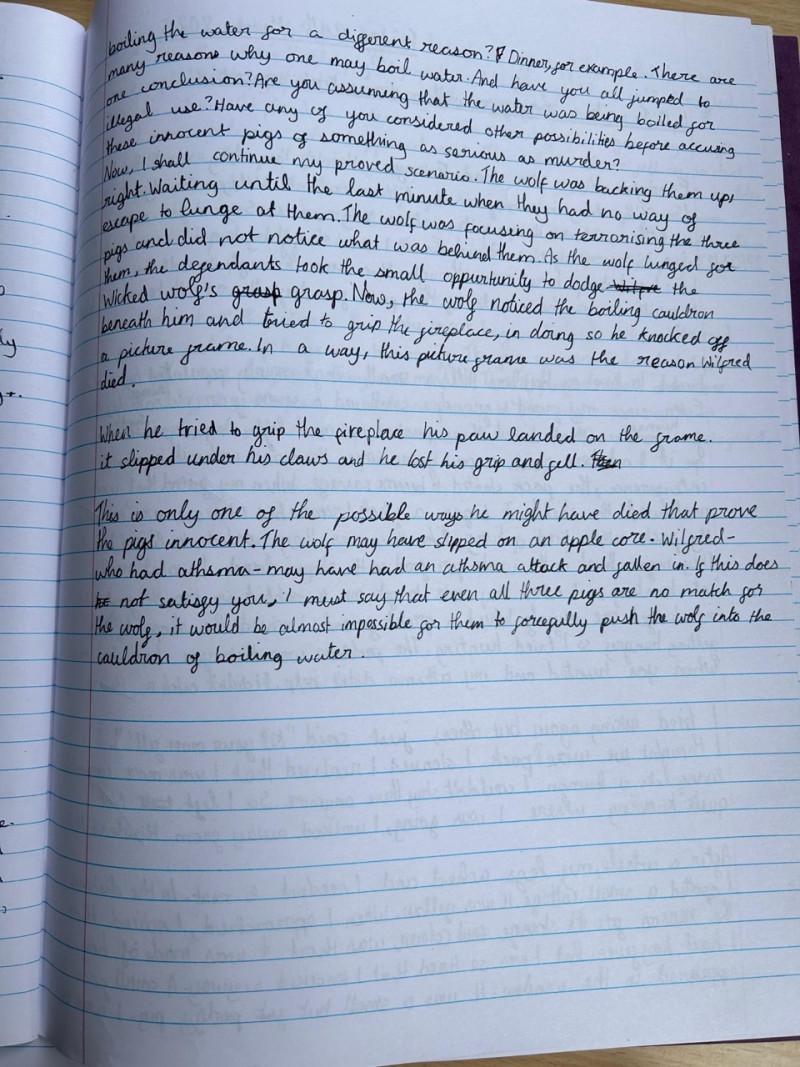 boiling the water for a different reason? Dinner, for example. There are
many reasons why one may boil water. And have you all jumped to
one conclusion? Are you assuming that the water was being boiled for
illegal use? Have any of you considered other possibilities before accusing
these innocent pigs of something as serious as murder?
Now, I shall continue my proved scenario. The wolf was backing them up,
right. Waiting until the last minute when they had no way of
escape to lunge at them. The wolf was focusing on terrorising the three
pigs and did not notice what was behind them. As the wolf lunged for
them, the defendants took the small oppurtunity to dodge the
Wicked wolf's grasp grasp. Now, the wolf noticed the boiling cauldron
beneath him and tried to grip the fireplace, in doing so he knocked off
a picture frame. In a way, this picture frame was the reason Wilfred
died.
When he tried to grip the fireplace his paw landed on the frame.
it slipped under his claws and he lost his grip and fell.
This is only one of the possible ways he might have died that prove
the pigs innocent. The wolf may have slipped on an apple core. Wilfred-
who had athsma - may have had an athsma attack and fallen in. If this does
not satisfy you, I must say that even all three pigs are no match for
the wolf, it would be almost impossible for them to forcefully push the wolf into the
cauldron of boiling water.